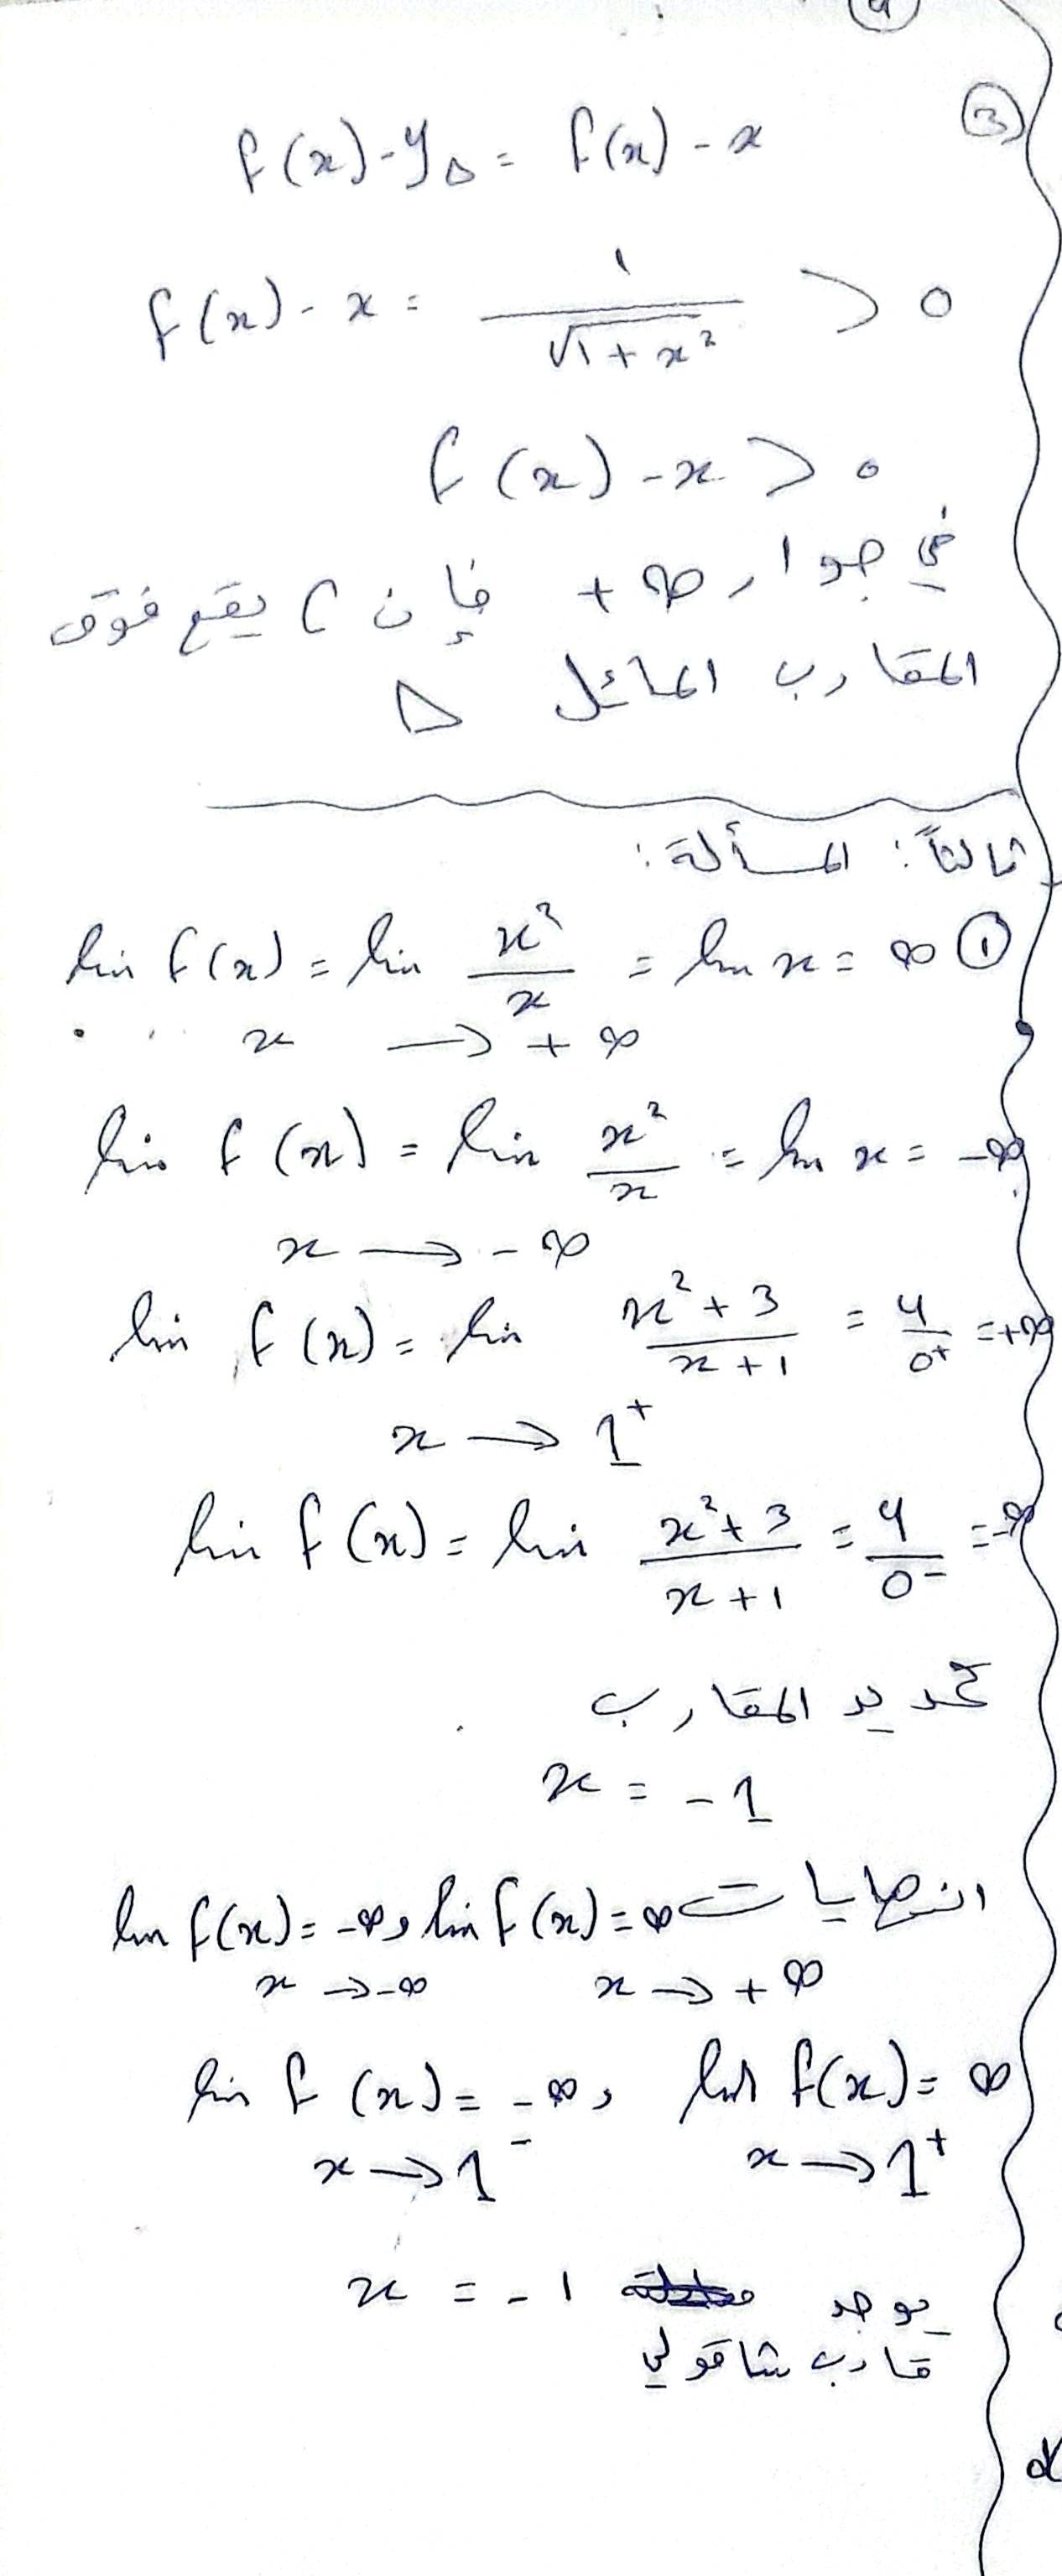 ③
f(x) - y_Δ = f(x) - x
f(x) - x = 1/√(1+x²) > 0
f(x) - x > 0
في جوار +∞ فإن C يقع فوق
المقارب المائل Δ
ثالثاً: المسألة:
① lim f(x) = lim x²/x = lim x = ∞
x → +∞
lim f(x) = lim x²/x = lim x = -∞
x → -∞
lim f(x) = lim (x²+3)/(x+1) = 4/0⁺ = +∞
x → 1⁺
lim f(x) = lim (x²+3)/(x+1) = 4/0⁻ = -∞
تحديد المقارب
x = -1
النهايات lim f(x) = ∞ و lim f(x) = -∞
x → +∞ x → -∞
lim f(x) = ∞ , lim f(x) = -∞
x → 1⁺ x → 1⁻
يوجد x = -1
قارب شاقولي